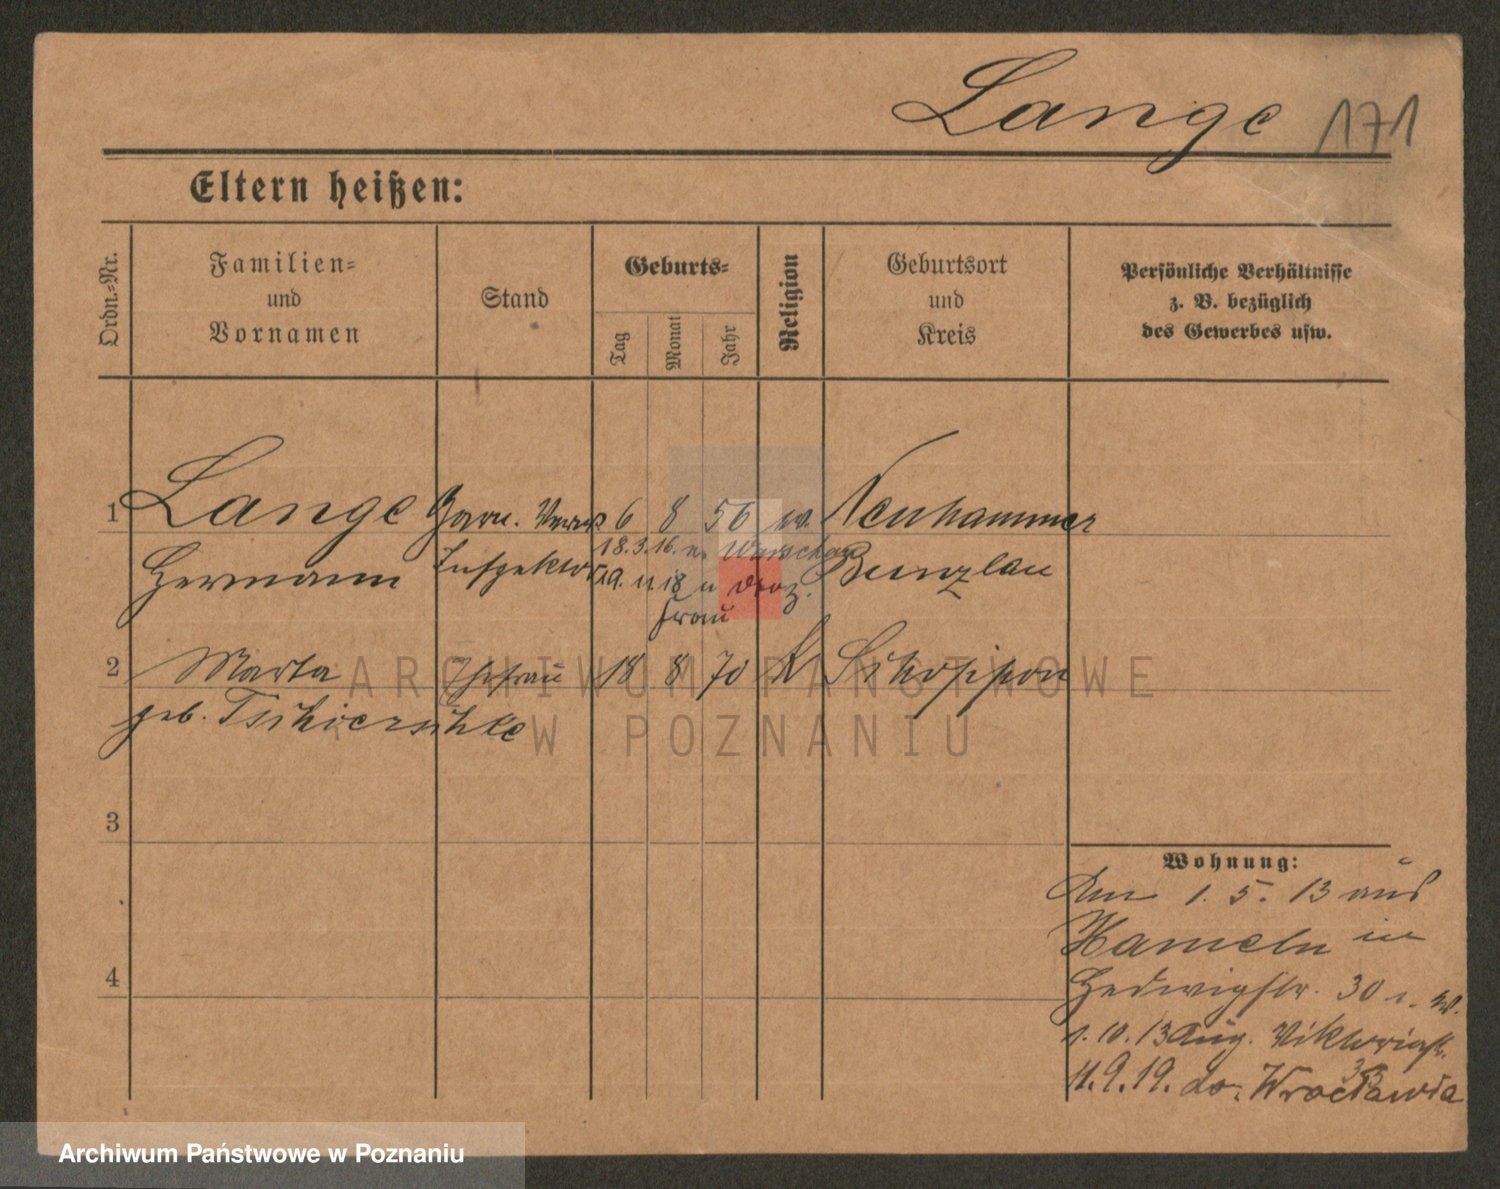 Lange 171
Eltern heißen:
Ordn.-Nr.
Familien=
und
Vornamen
Stand
Geburts=
Tag
Monat
Jahr
Religion
Geburtsort
und
Kreis
Persönliche Verhältnisse
z. B. bezüglich
des Gewerbes usw.
1 Lange Garn. Verw. 6 8 56 ev. Neuhammer
18.3.16. n. Warschau
Hermann Inspektor Bunzlau
29. 11. 18 u
Frau
2 Marta Ehefrau 18 8 70 k
geb.
3
4
Wohnung:
Am 1. 5. 13 aus
Hameln in
Hedwigstr. 30 z. W.
1. 10. 13 Aug. Viktoriastr.
33
11.9.19. do. Wrocławia
ARCHIWUM PAŃSTWOWE
W POZNANIU
Archiwum Państwowe w Poznaniu